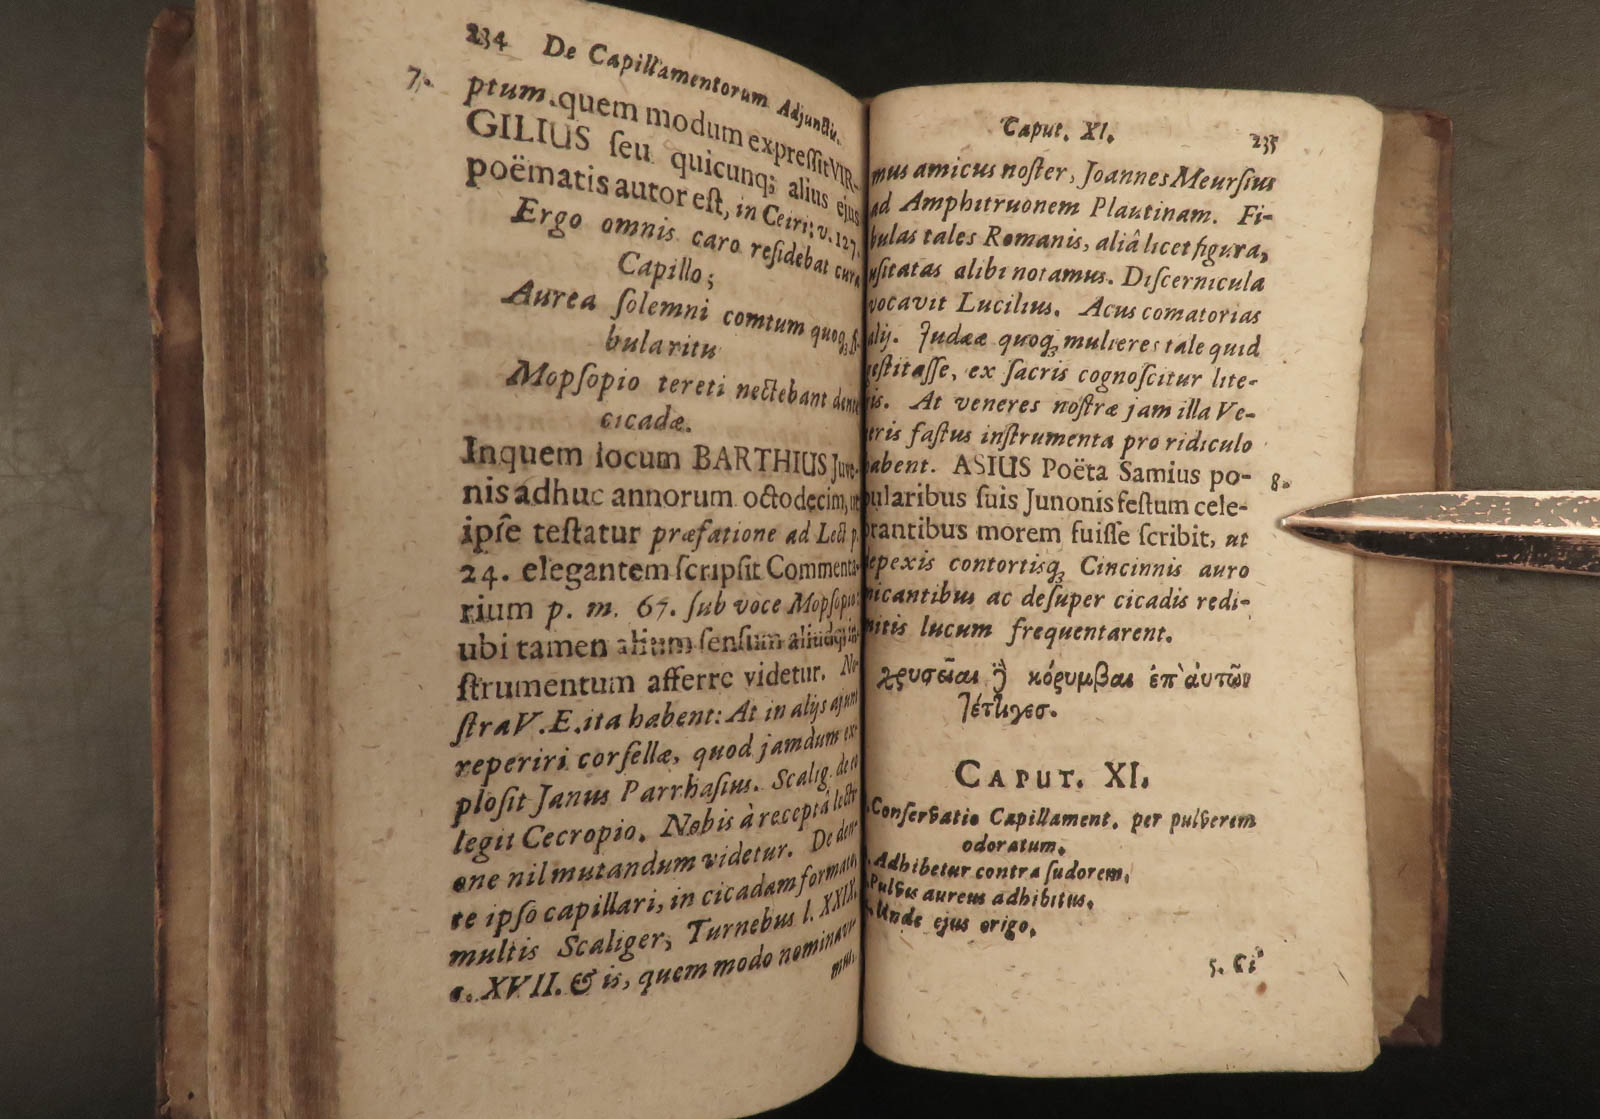 234 De Capillamentorum Adjunctis.
7. ptum. quem modum expressit VIR-
GILIUS seu quicunq; alius ejus
poëmatis autor est, in Ceiri; v. 127.
Ergo omnis caro residebat cura
Capillo;
Aurea solemni comtum quoq; fi-
bula ritu
Mopsopio tereti nectebant dente
cicadæ.
In quem locum BARTHIUS Juve-
nis adhuc annorum octodecim, ut
ipse testatur præfatione ad Lect. p.
24. elegantem scripsit Commenta-
rium p. m. 67. sub voce Mopsopio:
ubi tamen alium sensum aliudq; in-
strumentum afferre videtur. No-
stra V. E. ita habent: At in alijs ajunt
reperiri corsellæ, quod jamdum ex-
plosit Janus Parrhasius. Scalig. de eo
legit Cecropio. Nobis à receptâ lecti-
one nil mutandum videtur. De den-
te ipso capillari, in cicadam formato,
multis Scaliger, Turnebus l. XXIX.
c. XVII. & is, quem modo nominavi-
mus,
Caput. XI. 235
mus amicus noster, Joannes Meursius
ad Amphitruonem Plautinam. Fi-
bulas tales Romanis, aliâ licet figura,
usitatas alibi notamus. Discernicula
vocavit Lucilius. Acus comatorias
alij. Judææ quoq; mulieres tale quid
gestitasse, ex sacris cognoscitur lite-
ris. At veneres nostræ jam illa Ve-
teris fastus instrumenta pro ridiculo
habent. ASIUS Poëta Samius po- 8.
pularibus suis Junonis festum cele-
brantibus morem fuisse scribit, ut
depexis contortisq; Cincinnis auro
micantibus ac desuper cicadis redi-
mitis lucum frequentarent.
χρυσεῖαι ἢ κόρυμβαι ἐπ' ἀυτῶν
τέτλιγεσ.
CAPUT. XI.
Conservatio Capillament. per pulverem
odoratum.
Adhibetur contra sudorem,
Pulvis aureus adhibitus.
Unde ejus origo.
5. Ci